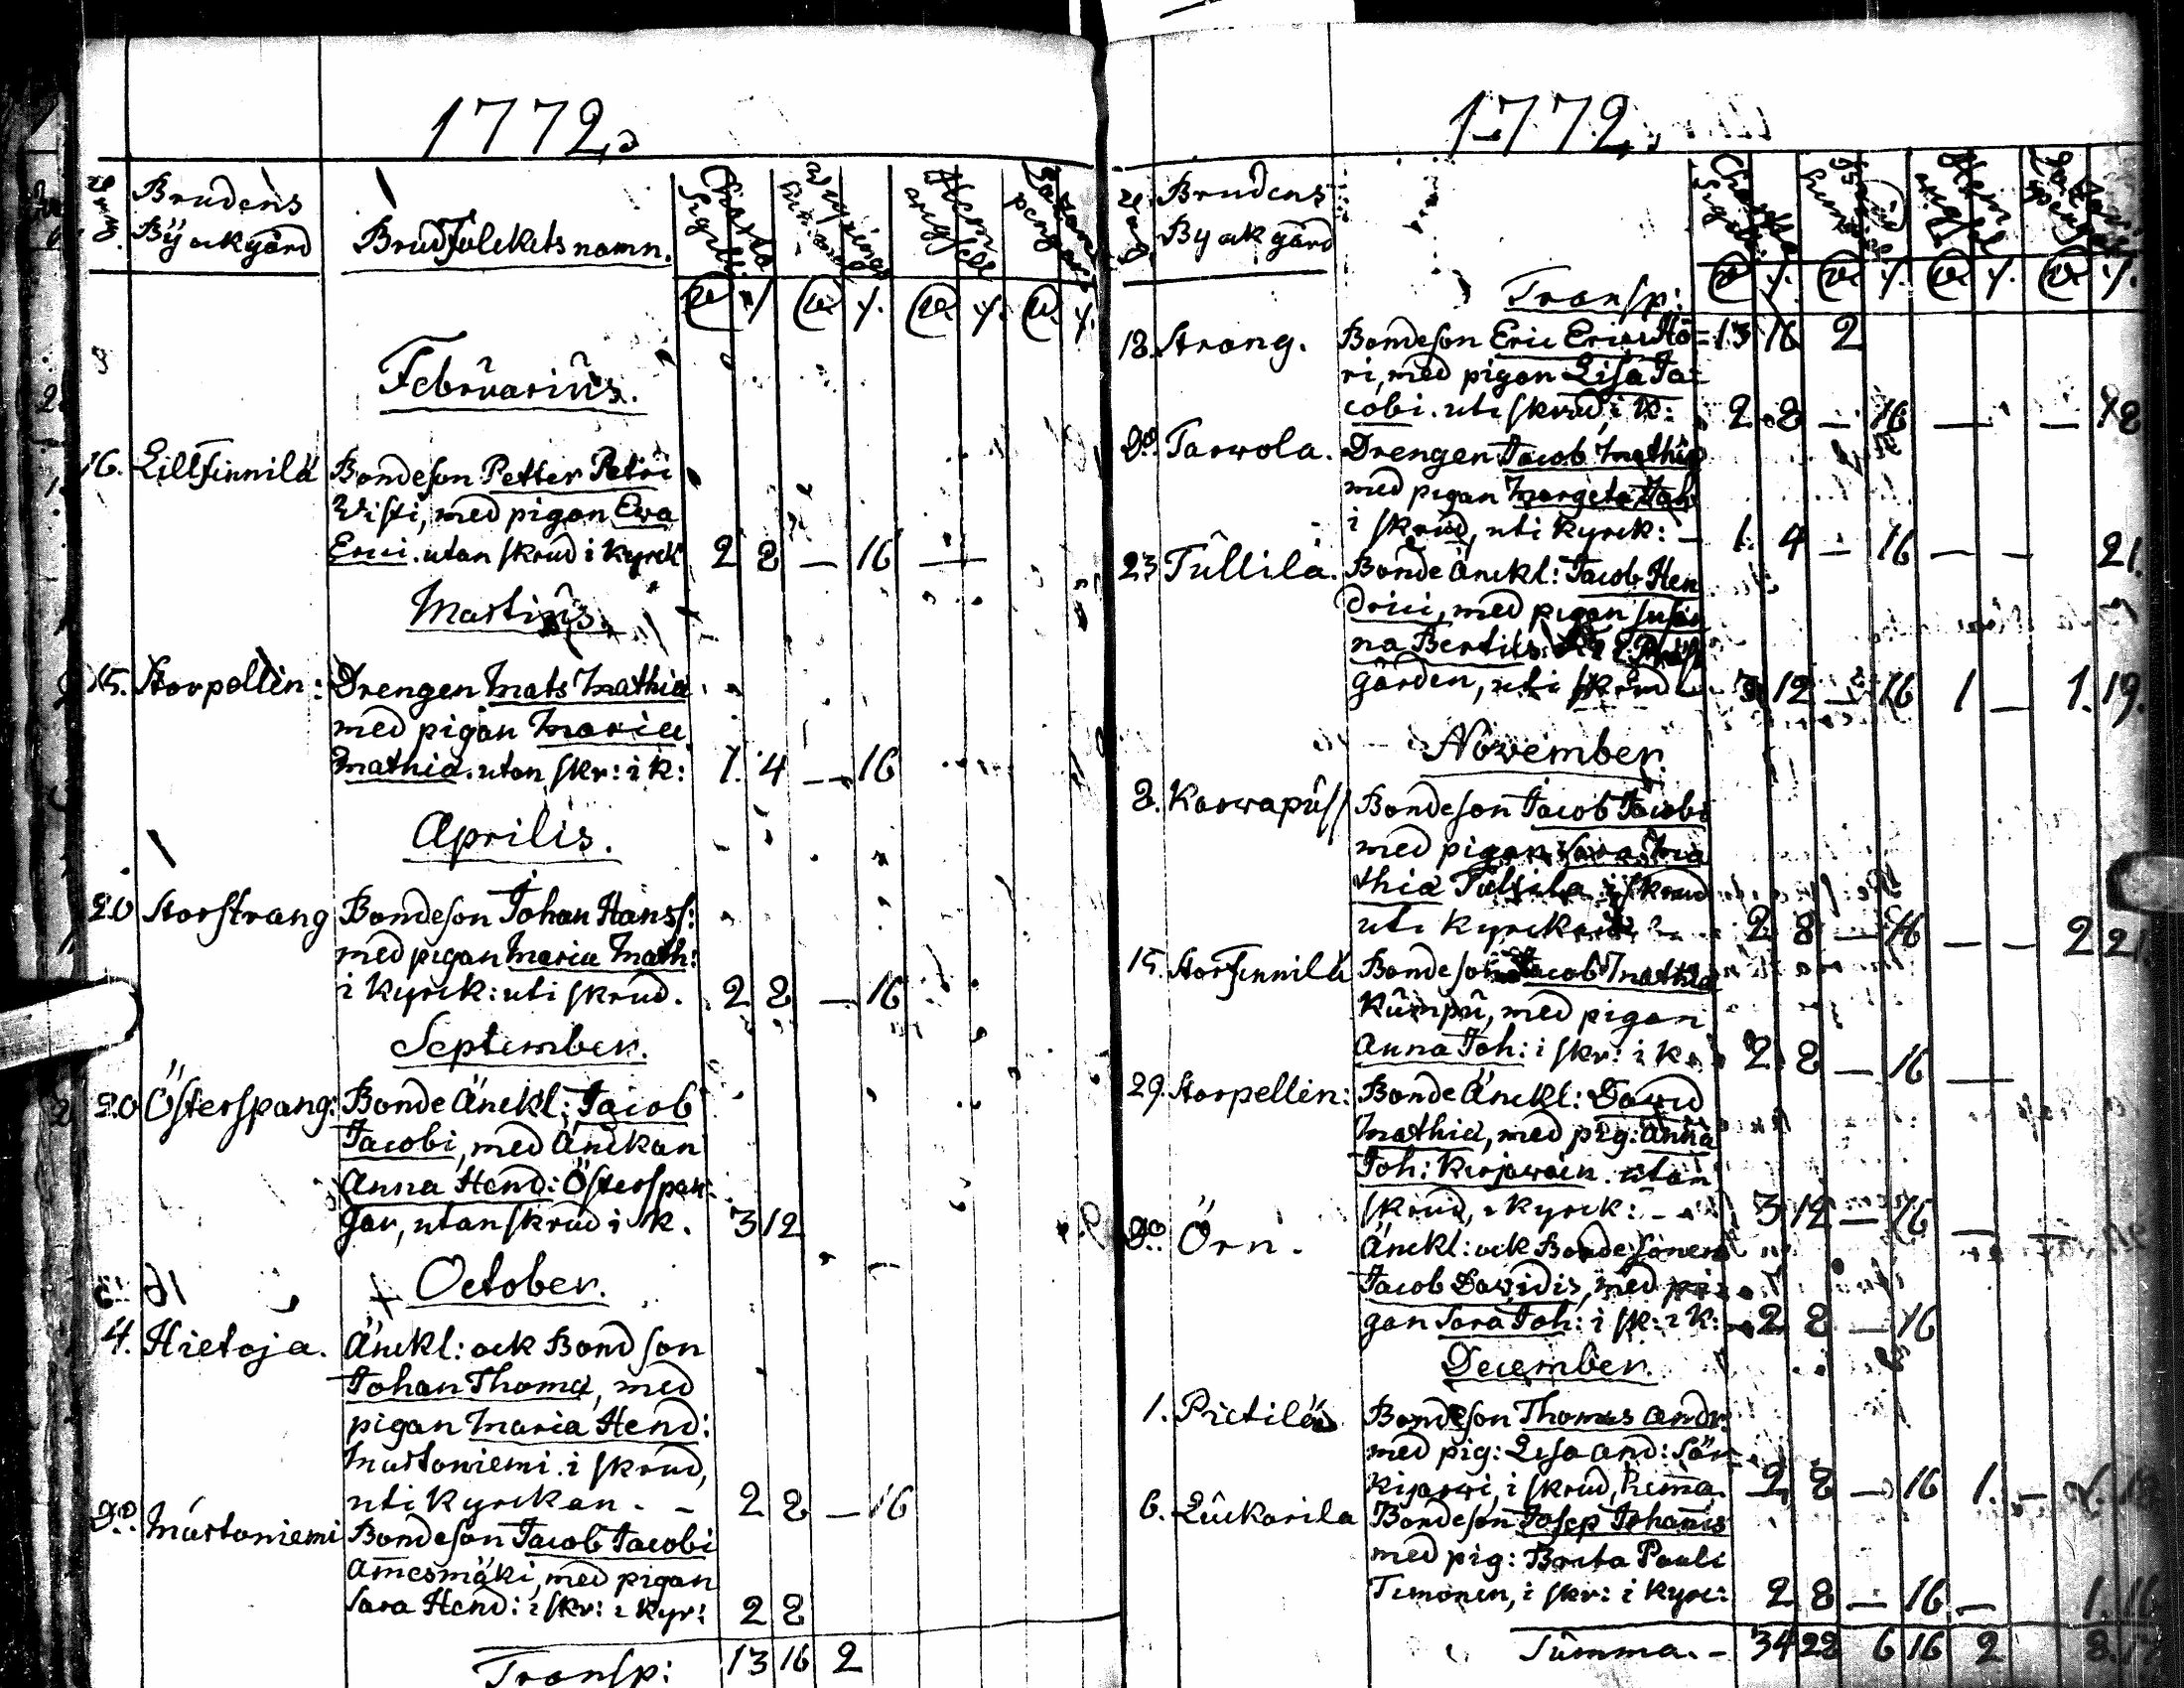 1772.
Brudens
By ock gård
Brudfolckets namn.
Charta
Sigill:
Februarius.
16. Lillfinnilä Bondeson Petter Petri
Wisti, med pigan Ewa
Erici. utan skrud i kyrck 2 8 — 16 —
Martius.
15. Storpellin: Drengen Mats Mathiæ
med pigan Maria
Mathiæ. utan skr: i k: 1. 4 — 16
Aprilis.
20 Storstrang Bondeson Johan Hanss:
med pigan Maria Math:
i kyrck: uti skrud. 2 8 — 16
September.
20 Österspang: Bonde Änckl: Jacob
Jacobi, med Änckan
Anna Hend: Österspan-
gar, utan skrud i k. 3 12
October.
4. Hietoja. Änckl: ock Bondson
Johan Thomæ, med
pigan Maria Hend:
Mustoniemi. i skrud,
uti kyrckan. - 2 8 — 16
do. Mustoniemi Bondeson Jacob Jacobi
Amesmäki, med pigan
Sara Hend: i skr: i kyr: 2 8
Transp: 13 16 2
1772.
Brudens
By ock gård
Transp:
18. Strang. Bondeson Eric Erici Hö= 13 16 2
ri, med pigan Lisa Ja=
cobi. uti skrud, i k: 2 8 — 16 — — 18
do. Tarwola. Drengen Jacob Mathiæ
med pigan Margeta Joh
i skrud, uti kyrck: - 1. 4 — 16 — — 21.
23 Tullila. Bonde Änckl: Jacob Hen
drici, med pigan Susan
na Bertils
gården, uti skrud 3 12 — 16 1 — 1. 19.
November.
8. Karwapuss Bondeson Jacob Jacobi
med pigan Sara Ma
thiæ Tullila i skrud
uti kyrckan 2 8 — 16 — — 2 21
15. Storfinnilä Bondeson Jacob Mathiæ
Kumpu, med pigan
Anna Joh: i skr: i k. 2 8 — 16 —
29. Storpellin: Bonde Änckl: David
Mathiæ, med pig: Anna
Joh: Kirjawain. utan
skrud, i kyrck: - 3 12 — 16 —
do. Örn. Änckl: ock Bondesonen
Jacob Davidis, med pi
gan Sara Joh: i sk: i k: 2 8 — 16
December.
1. Pietilä Bondeson Thomas Andr:
med pig: Lisa And: Sär
kijarwi, i skrud, hema. 2 8 — 16 1. —
6. Luckarila Bondeson Josep Johannis
med pig: Brita Pauli
Timonen, i skr: i kyrc: 2 8 — 16 — 1. 16
Summa. - 34 22 6 16 2 8.